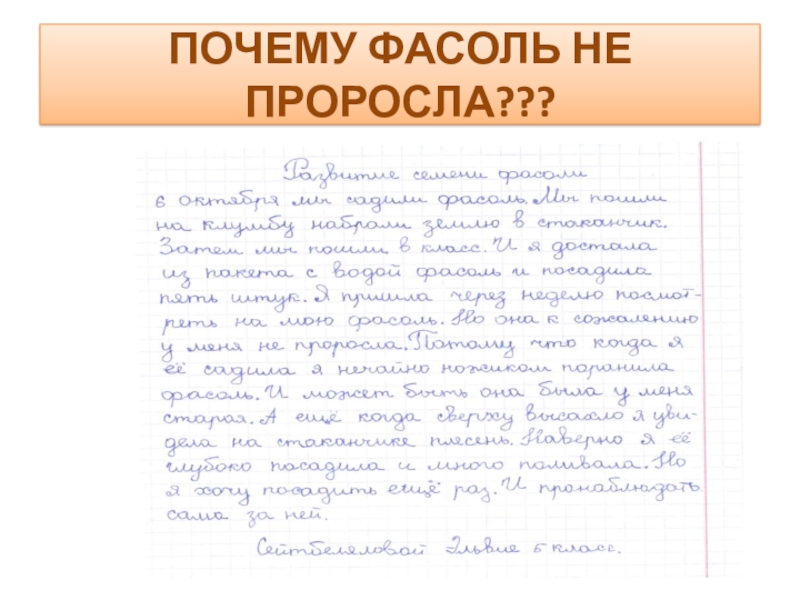 ПОЧЕМУ ФАСОЛЬ НЕ
ПРОРОСЛА???
Развитие семени фасоли
6 октября мы садили фасоль. Мы пошли
на клумбу набрали землю в стаканчик.
Затем мы пошли в класс. И я достала
из пакета с водой фасоль и посадила
пять штук. Я пришла через неделю посмот-
реть на мою фасоль. Но она к сожалению
у меня не проросла. Потому что когда я
её садила я нечайно ножиком поранила
фасоль. И может быть она была у меня
старая. А ещё когда сверху высахло я уви-
дела на стаканчике плесень. Наверно я её
глубоко посадила и много поливала. Но
я хочу посадить ещё раз. И пронаблюдать
сама за ней.
Сейтбеляловой Эльвие 5 класс.